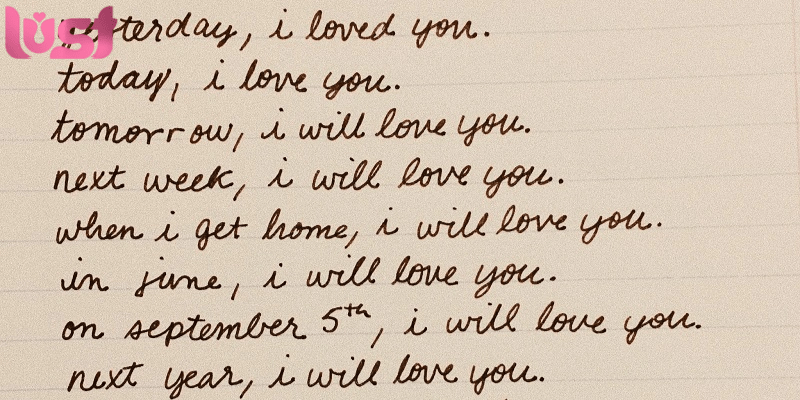 lust
yesterday, i loved you.
today, i love you.
tomorrow, i will love you.
next week, i will love you.
when i get home, i will love you.
in june, i will love you.
on september 5th, i will love you.
next year, i will love you.